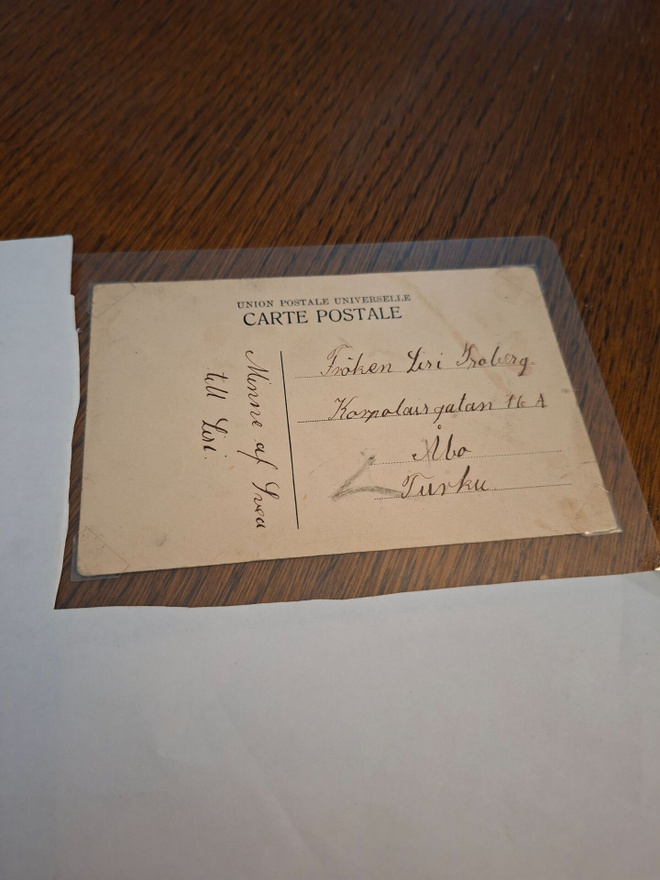 UNION POSTALE UNIVERSELLE
CARTE POSTALE
Minne af Svea
till Lisi.
Fröken Lisi Froberg.
Korpolaisgatan 16 A
Åbo
Turku